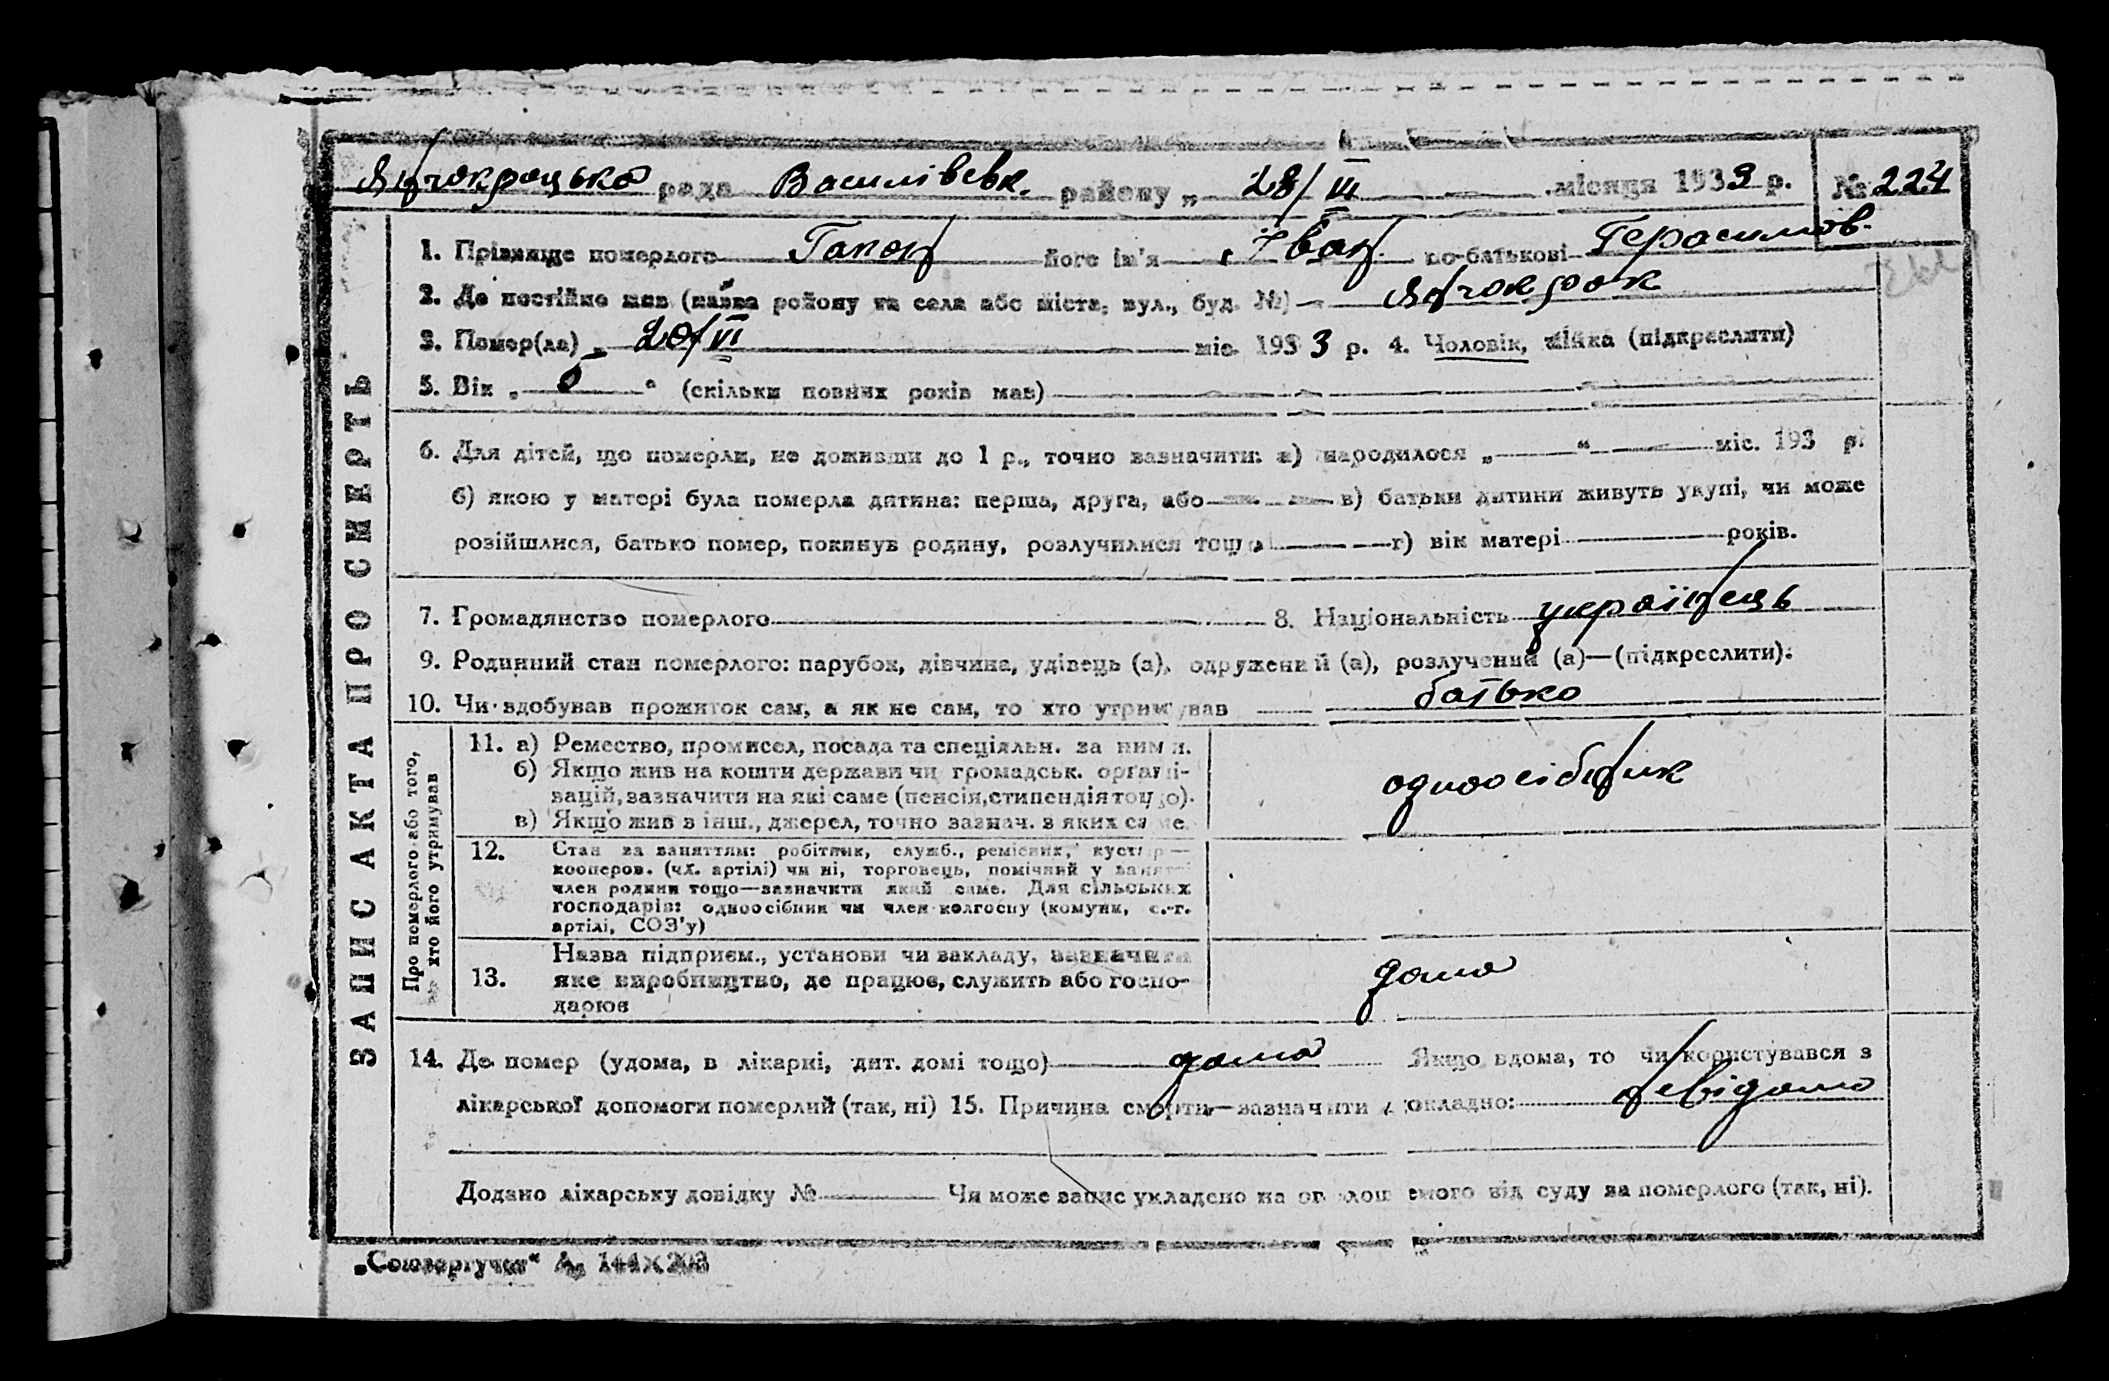 Янчокрацька рада Василівськ. району „ 28/III місяця 1933 р. № 224
1. Прізвище померлого Гапон його ім'я Іван по-батькові Герасимов.
2. Де постійно жив (назва району та села або міста, вул., буд. №) Янчокрак
3. Помер(ла) „ 20/VI міс. 1933 р. 4. Чоловік, жінка (підкреслити)
5. Вік „ “ (скільки повних років мав)
6. Для дітей, що померли, не доживши до 1 р., точно зазначити: а) народилося „ “ міс. 193 р.
б) якою у матері була померла дитина: перша, друга, або в) батьки дитини живуть укупі, чи може
розійшлися, батько помер, покинув родину, розлучилися тощо г) вік матері років.
7. Громадянство померлого 8. Національність українець
9. Родинний стан померлого: парубок, дівчина, удівець (а), одружений (а), розлучений (а)—(підкреслити).
10. Чи здобував прожиток сам, а як не сам, то хто утримував батько
ЗАПИС АКТА ПРО СМЕРТЬ
Про померлого або того,
хто його утримував
11. а) Ремество, промисел, посада та спеціяльн. за ними.
б) Якщо жив на кошти держави чи громадськ. органі-
зацій, зазначити на які саме (пенсія, стипендія тощо).
в) Якщо жив з інш., джерел, точно зазнач. з яких саме.
одноосібник
12. Стан за заняттям: робітник, служб., ремісник, кустар—
кооперов. (чл. артілі) чи ні, торговець, помічний у занятті
член родини тощо—зазначити який саме. Для сільських
господарів: одноосібник чи член колгоспу (комуни, с.-г.
артілі, СОЗ'у)
13. Назва підприєм., установи чи закладу, зазначити
яке виробництво, де працює, служить або госпо-
дарює
дома
14. Де помер (удома, в лікарні, дит. домі тощо) дома Якщо вдома, то чи користувався з
лікарської допомоги померлий (так, ні) 15. Причина смерти—зазначити докладно: невідомо
Додано лікарську довідку № Чи може запис укладено на оголошеного від суду за померлого (так, ні).
144×203